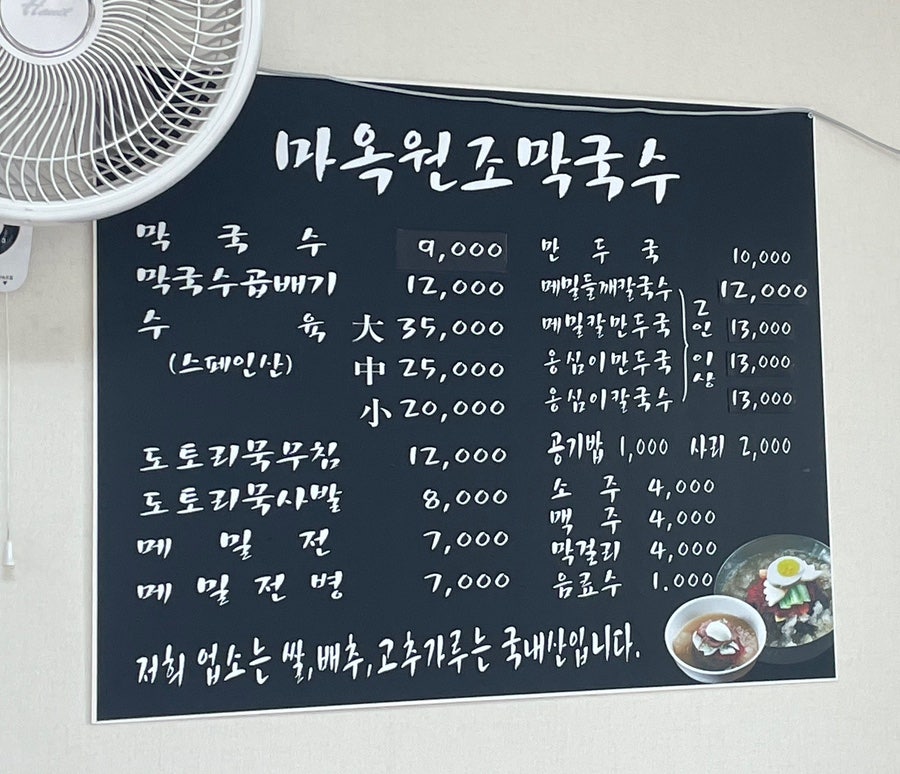 마옥원조막국수
막국수 9,000
막국수곱배기 12,000
수육 大 35,000
(스페인산) 中 25,000
小 20,000
도토리묵무침 12,000
도토리묵사발 8,000
메밀전 7,000
메밀전병 7,000
만두국 10,000
메밀들깨칼국수 12,000
메밀칼만두국 13,000
옹심이만두국 13,000
옹심이칼국수 13,000
2인이상
공기밥 1,000 사리 2,000
소주 4,000
맥주 4,000
막걸리 4,000
음료수 1.000
저희 업소는 쌀,배추,고추가루는 국내산입니다.